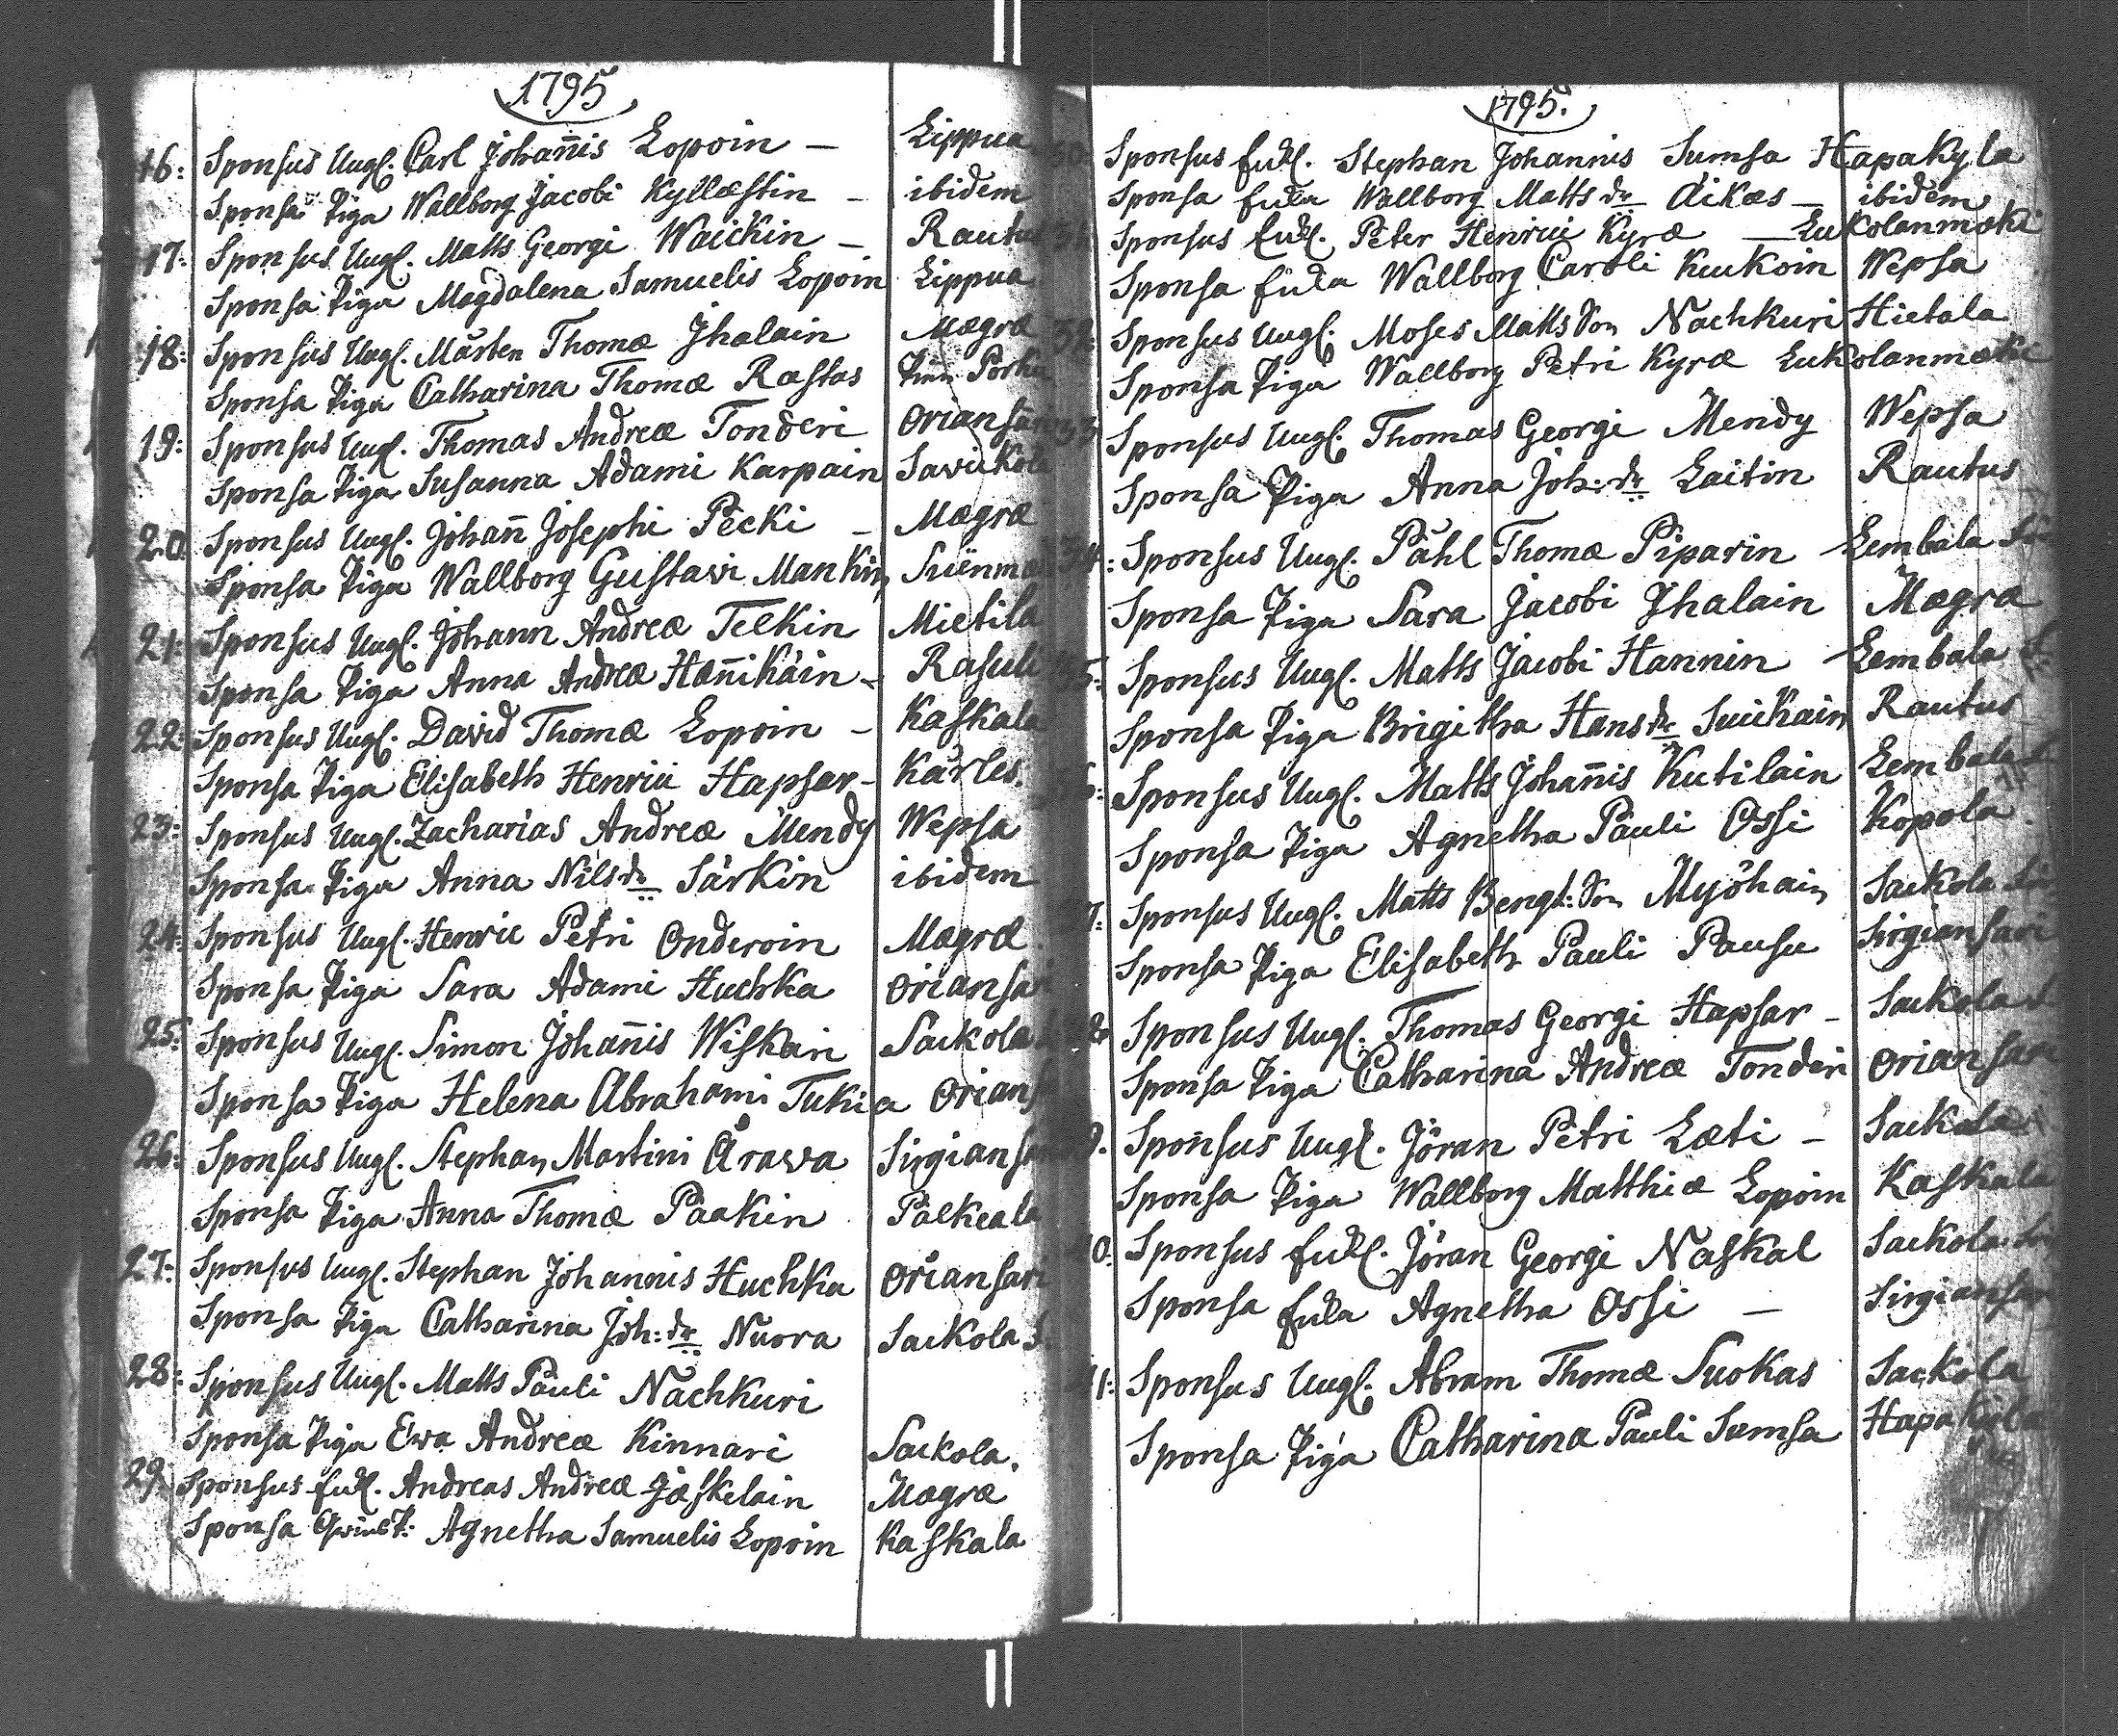 1795
16: Sponsus Ungl. Carl Johan̄is Lopoin — Lippua
Sponsa Piga Wallborg Jacobi Kyllæstin — ibidem
17: Sponsus Ungl. Matts Georgi Waickin — Rautu
Sponsa Piga Magdalena Samuelis Lopoin Lippua
18: Sponsus Ungl. Mårten Thomæ Jhalain Mægræ
Sponsa Piga Catharina Thomæ Rastas Porku
19: Sponsus Ungl. Thomas Andreæ Tonderi Oriansari
Sponsa Piga Susanna Adami Karpain Savikola
20: Sponsus Ungl. Johan̄ Josephi Pecki — Mægræ
Sponsa Piga Wallborg Gustavi Mankin Suienmæ
21: Sponsus Ungl. Johann Andreæ Telkin Mietila
Sponsa Piga Anna Andreæ Hæn̄ikäin — Rasuli
22: Sponsus Ungl. David Thomæ Lopoin — Kaskala
Sponsa Piga Elisabeth Henrici Hapsar — Karles.
23: Sponsus Ungl. Zacharias Andreæ Mendy Wepsa
Sponsa Piga Anna Nils dr Särkin ibidem
24: Sponsus Ungl. Henric Petri Onderoin Mægræ
Sponsa Piga Sara Adami Huchka Oriansar
25: Sponsus Ungl. Simon Johan̄is Wiskain Sackola
Sponsa Piga Helena Abrahami Tukia Orians
26: Sponsus Ungl. Stephan Martini Årawa Sirgiansa
Sponsa Piga Anna Thomæ Paakin Palkeala
27: Sponsus Ungl. Stephan Johannis Huchka Oriansari
Sponsa Piga Catharina Joh: dr Nuora Sackola S.
28: Sponsus Ungl. Matts Pauli Nachkuri
Sponsa Piga Ewa Andreæ Kinnari Sackola.
29: Sponsus Enkl. Andreas Andreæ Jæskelain Mægræ
Sponsa Agnetha Samuelis Lopoin Kaskala
1795.
30: Sponsus Enkl. Stephan Johannis Sumsa Hapakyla
Sponsa Enka Wallborg Matts dr Aikæs — ibidem
31: Sponsus Enkl. Peter Henrici Kyræ — Lukolanmæki
Sponsa Enka Wallborg Caroli Kuukoin Wepsa
32: Sponsus Ungl. Moses Matts Son Nachkuri Hietala
Sponsa Piga Wallborg Petri Kyræ Lukolanmæki
33 Sponsus Ungl. Thomas Georgi Mendy Wepsa
Sponsa Piga Anna Joh: dr Laitin Rautus
4: Sponsus Ungl. Påhl Thomæ Piparin Lembala
Sponsa Piga Sara Jacobi Jhalain Mægræ
35: Sponsus Ungl. Matts Jacobi Hannin Lembala S.
Sponsa Piga Brigitha Hans dr Suikain Rautus
6: Sponsus Ungl. Matts Johan̄is Kutilain Lembala
Sponsa Piga Agnetha Pauli Ossi Kopola.
7: Sponsus Ungl. Matts Bengt: Son Myöhain Sackola
Sponsa Piga Elisabeth Pauli Pausu Sirgiansari
8 Sponsus Ungl. Thomas Georgi Hapsar — Sackola S.
Sponsa Piga Catharina Andreæ Tonderi Oriansari
9. Sponsus Ungl. Jöran Petri Læti — Sackola
Sponsa Piga Wallborg Matthiæ Lopoin Kaskala
40: Sponsus Enkl. Jöran Georgi Naskal Sackola
Sponsa Enka Agnetha Ossi — Sirgiansar
41: Sponsus Ungl. Abram Thomæ Suokas Sackola
Sponsa Piga Catharina Pauli Sumsa Hapakyla